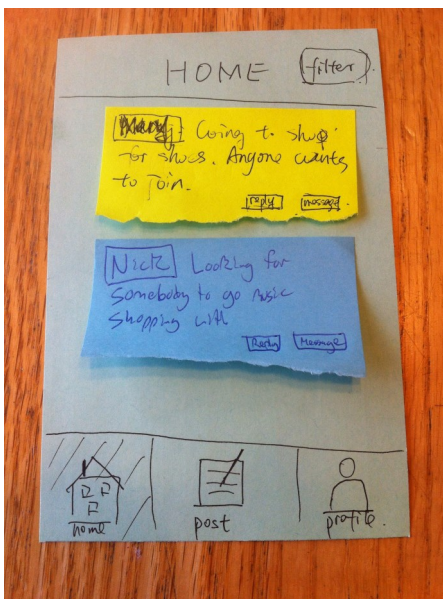 HOME
filter
Mandy Going to shop
for shoes. Anyone wants
to join.
reply message
Nick Looking for
somebody to go music
shopping with
Reply Message
home
post
profile.